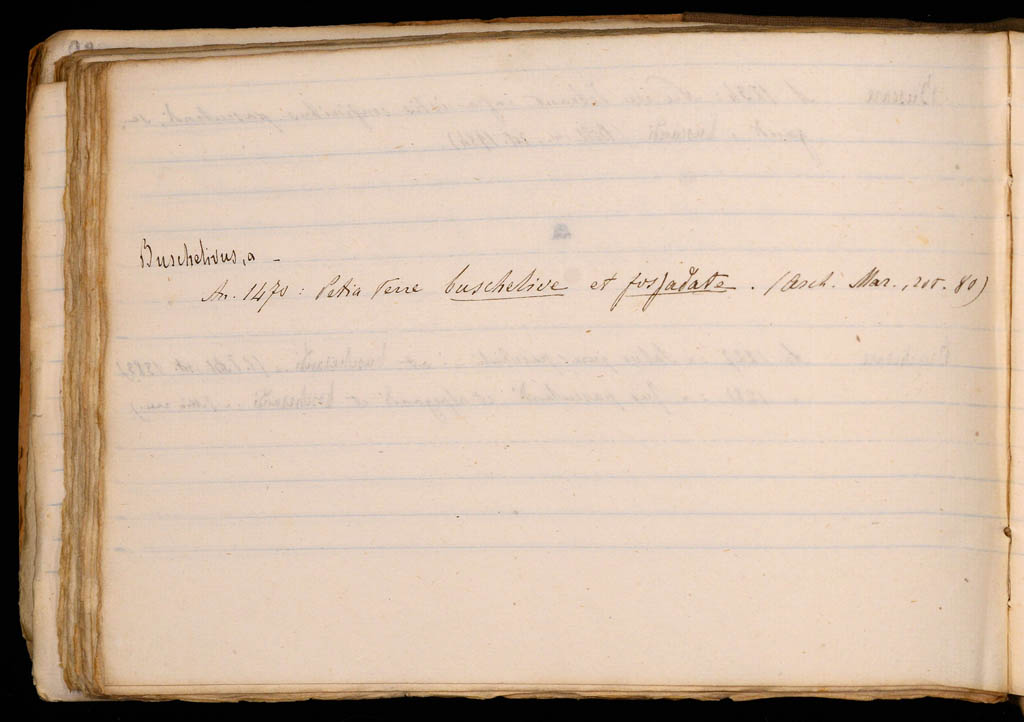 Buschelivus, a –
An. 1470: Petia terre buschelive et fossadate. (Arch. Mar., 205. 80)